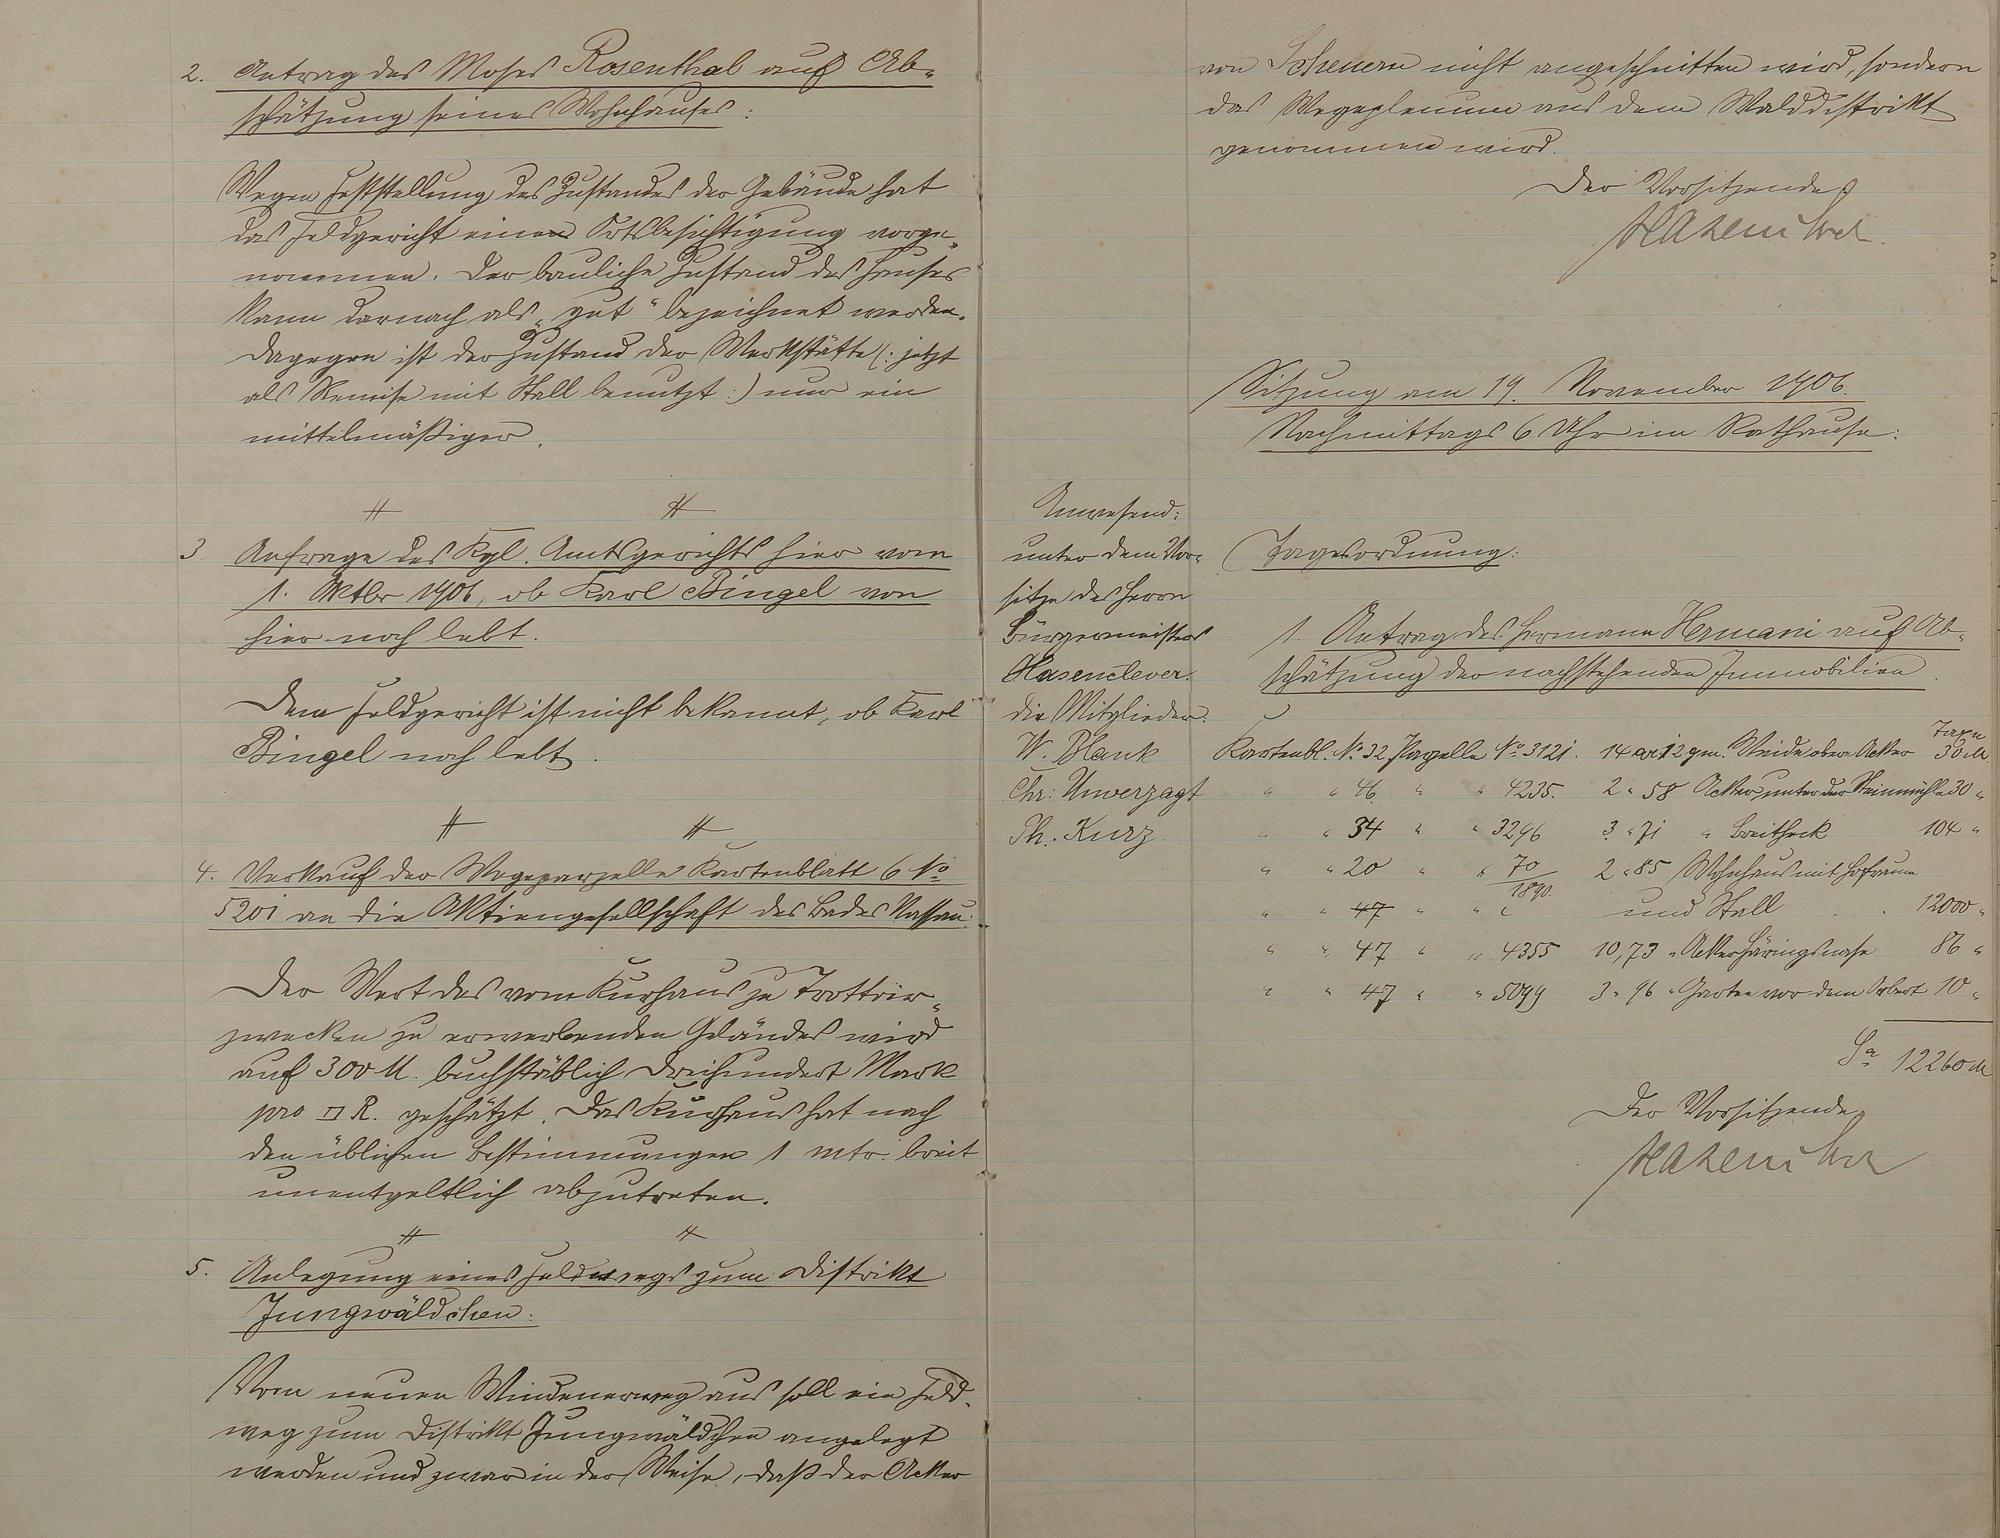 2. Antrag des Moses Rosenthal auf Ab-
schätzung seines Wohnhauses:
Wegen Feststellung des Zustandes der Gebäude hat
das Feldgericht eine Ortsbesichtigung vorge-
nommen. Der bauliche Zustand des Hauses
kann darnach als „gut“ bezeichnet werden.
Dagegen ist der Zustand der Werkstätte (: jetzt
als Remise mit Stall benutzt :) nur ein
mittelmäßiger.
3 Anfrage des Kgl. Amtsgerichts hier vom
1. Oktbr 1906, ob Karl Bingel von
hier noch lebt.
Dem Feldgericht ist nicht bekannt, ob Karl
Bingel noch lebt.
4. Verkauf der Wegeparzelle Kartenblatt 6 No
5201 an die Aktiengesellschaft des Bades Nassau:
Der Wert des vom Kurhaus zu Trottoir-
zwecken zu erwerbenden Geländes wird
auf 300 M. buchstäblich Dreihundert Mark
pro □ R. geschätzt. Das Kurhaus hat nach
den üblichen Bestimmungen 1 mtr. breit
unentgeltlich abzutreten.
5. Anlegung eines Feldwegs zum Distrikt
Jungwäldchen:
Vom neuen Windenerweg aus soll ein Feld-
weg zum Distrikt Jungwäldchen angelegt
werden und zwar in der Weise, daß der Acker
von Scheuern nicht angeschnitten wird, sondern
das Wegeplanum aus dem Walddistrikt
genommen wird.
Der Vorsitzende
Hasenclever.
Sitzung am 19. November 1906.
Nachmittags 6 Uhr im Rathause:
Anwesend:
unter dem Vor-
sitze des Herrn
Bürgermeisters
Hasenclever.
die Mitglieder:
W. Blank
Chr: Unverzagt
Ph. Kurz
Tagesordnung:
1. Antrag des Hermann Hermani auf Ab-
schätzung der nachstehenden Immobilien.
Taxe
Kartenbl. No 32 Parzelle No 3121. 14 ar 12 qm. Weide oberm Acker 30 M
" " 46 " " 4235. 2 " 58 Acker unter der Steinmühle 30 "
" " 34 " " 3296 3 " 71 " Breitheck 104 "
" " 20 " " 70/1890. 2 " 85 Wohnhaus mit Hofraum
" " 47 " " " und Stall 12000 "
" " 47 " " 4355 10,73 " Acker Häringsnase 86 "
" " 47 " " 5099 3 " 96 " Garten vor dem 10 "
Sa 12260 M
Der Vorsitzende
Hasenclever